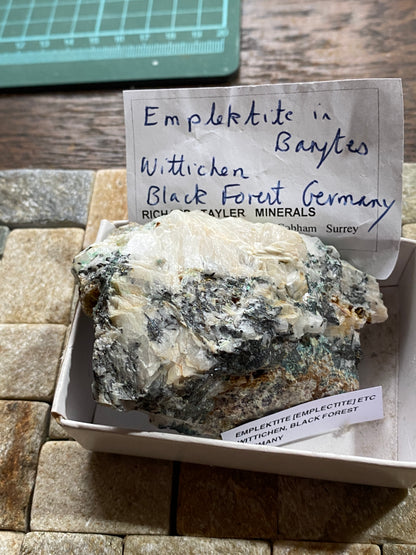 Emplektite in
Barytes
Wittichen
Black Forest Germany
TAYLER MINERALS
Cobham Surrey
EMPLEKTITE [EMPLECTITE] ETC
WITTICHEN, BLACK FOREST